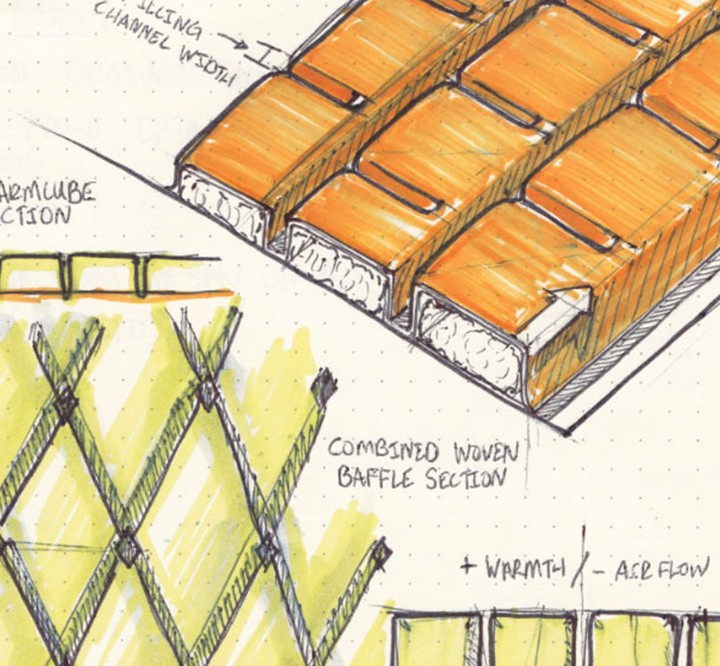 ILLING
CHANNEL WIDTH
ARMCUBE
CTION
COMBINED WOVEN
BAFFLE SECTION
+ WARMTH / - AIR FLOW